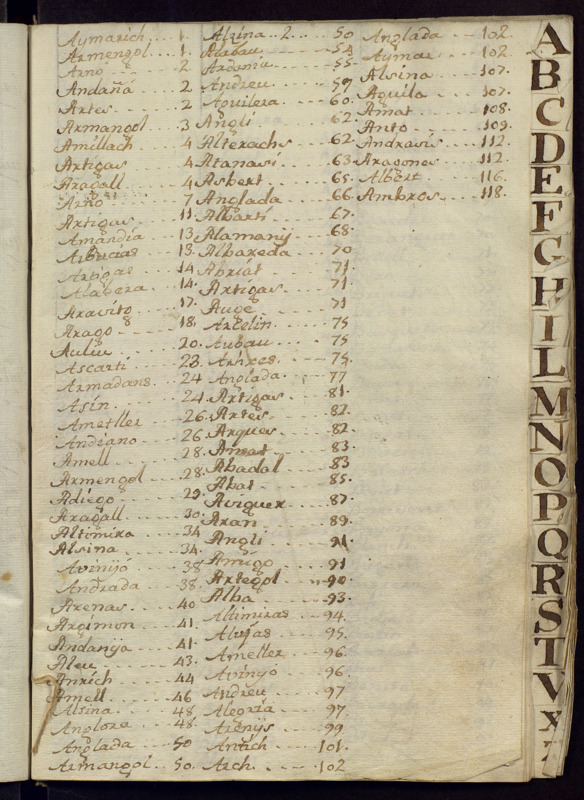 Aymarich . . 1.
Armengol . . 1.
Arnó . . 2
Andañá . . 2
Artes . . 2
Armangol . . 3
Amillach . . 4
Artigas . . 4
Aragall . . 4
Arnó . . 7
Artigas . . 11
Amandia . . 13
Arbucias . . 13.
Artigas . . 14
Alabera . . 14.
Aravito . . 17.
Arago . . 18.
Auliu . . 20.
Ascarti . . 23.
Armadans . . 24
Asin . . 24
Ametller . . 26.
Andiano . . 26
Amell . . 28.
Armengol . . 28.
Adiego . . 29.
Aragall . . 30.
Altimira . . 34
Alsina . . 34.
Avinijó . . 38
Andrada . . 38.
Arenas . . 40
Argimon . . 41.
Andanija . . 41.
Aleu . . 43.
Anrich . . 44
Amell . . 46
Alsina . . 48
Anglora . . 48
Anglada . . 50
Armangol . . 50.
Alsina . . 2 . . 50
Alabau . . 54
Ardaniu . . 55
Andreu . . 59
Aguilera . . 60.
Angli . . 62.
Alterachs . . 62.
Atanasi . . 63
Asbert . . 65.
Anglada . . 66.
Albarti . . 67.
Alamany . . 68
Albareda . . 70
Abriat . . 71.
Artigas . . 71
Auge . . 71
Arcelin . . 75
Aubau . . 75
Arnes . . 75.
Anglada . . 77
Artigas . . 81.
Artes . . 82.
Arques . . 82.
Amat . . 83
Abadal . . 83
Abat . . 85.
Aviguer . . 87.
Aran . . 89.
Angli . . 91.
Amigo . . 91
Artegol . . 90.
Alba . . 93.
Altimiras . . 94.
Alujas . . 95.
Ameller . . 96.
Avinyó . . 96.
Andreu . . 97
Alegria . . 97.
Arenijs . . 99
Antich . . 101.
Arch . . 102
Anglada . . 102.
Aymar . . 102
Alsina . . 107.
Aguila . . 107.
Amat . . 108.
Anto . . 109.
Andrasis . . 112.
Aragones . . 112
Albert . . 116
Ambros . . 118.
A
B
C
D
E
F
G
H
I
L
M
N
O
P
Q
R
S
T
V
X
Z